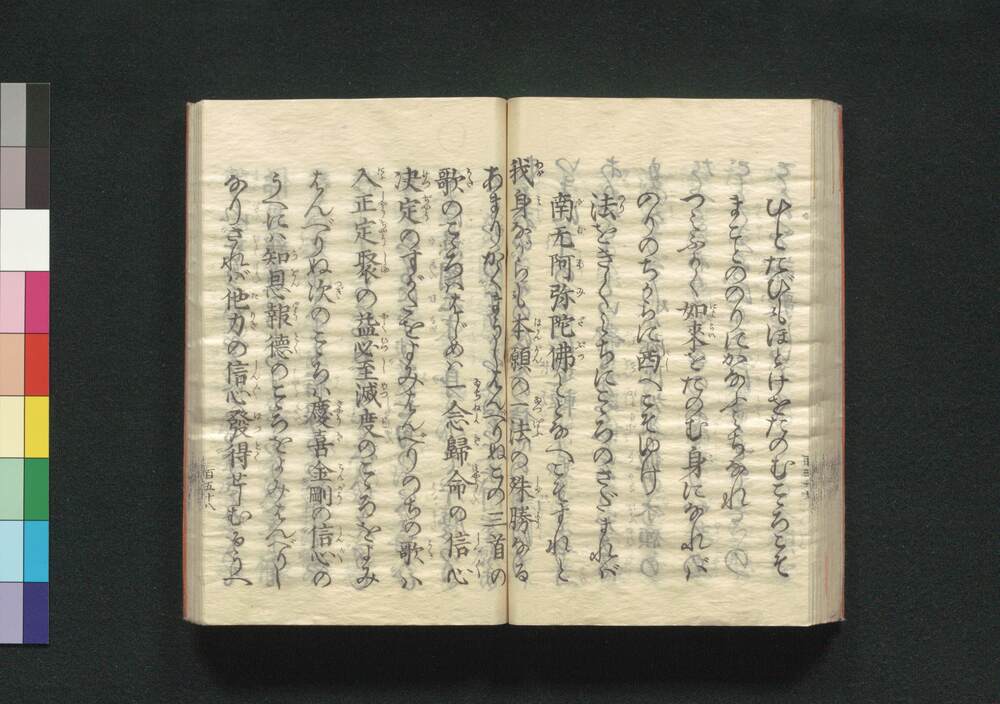 ひとたびもほとけをたのむこゝろこそ
まことののりにかなふみちなれ
つみふかく如来をたのむ身になれば
のりのちからに西へこそゆけ
法をきくみちにこゝろのさだまれば
南无阿弥陀佛ととなへこそすれと
我身ながらも本願の一法の殊勝なる
あまりかくまうしはんべりぬこの三首の
歌のこゝろははじめは一念歸命の信心
決定のすがたをよみはんべりのちの歌は
入正定聚の益必至滅度のこゝろをよみ
はんべりぬ次のこゝろは慶喜金剛の信心の
うへには知恩報德のこゝろをよみはんべりし
なりされば他力の信心發得せしむるうへ
百五十八